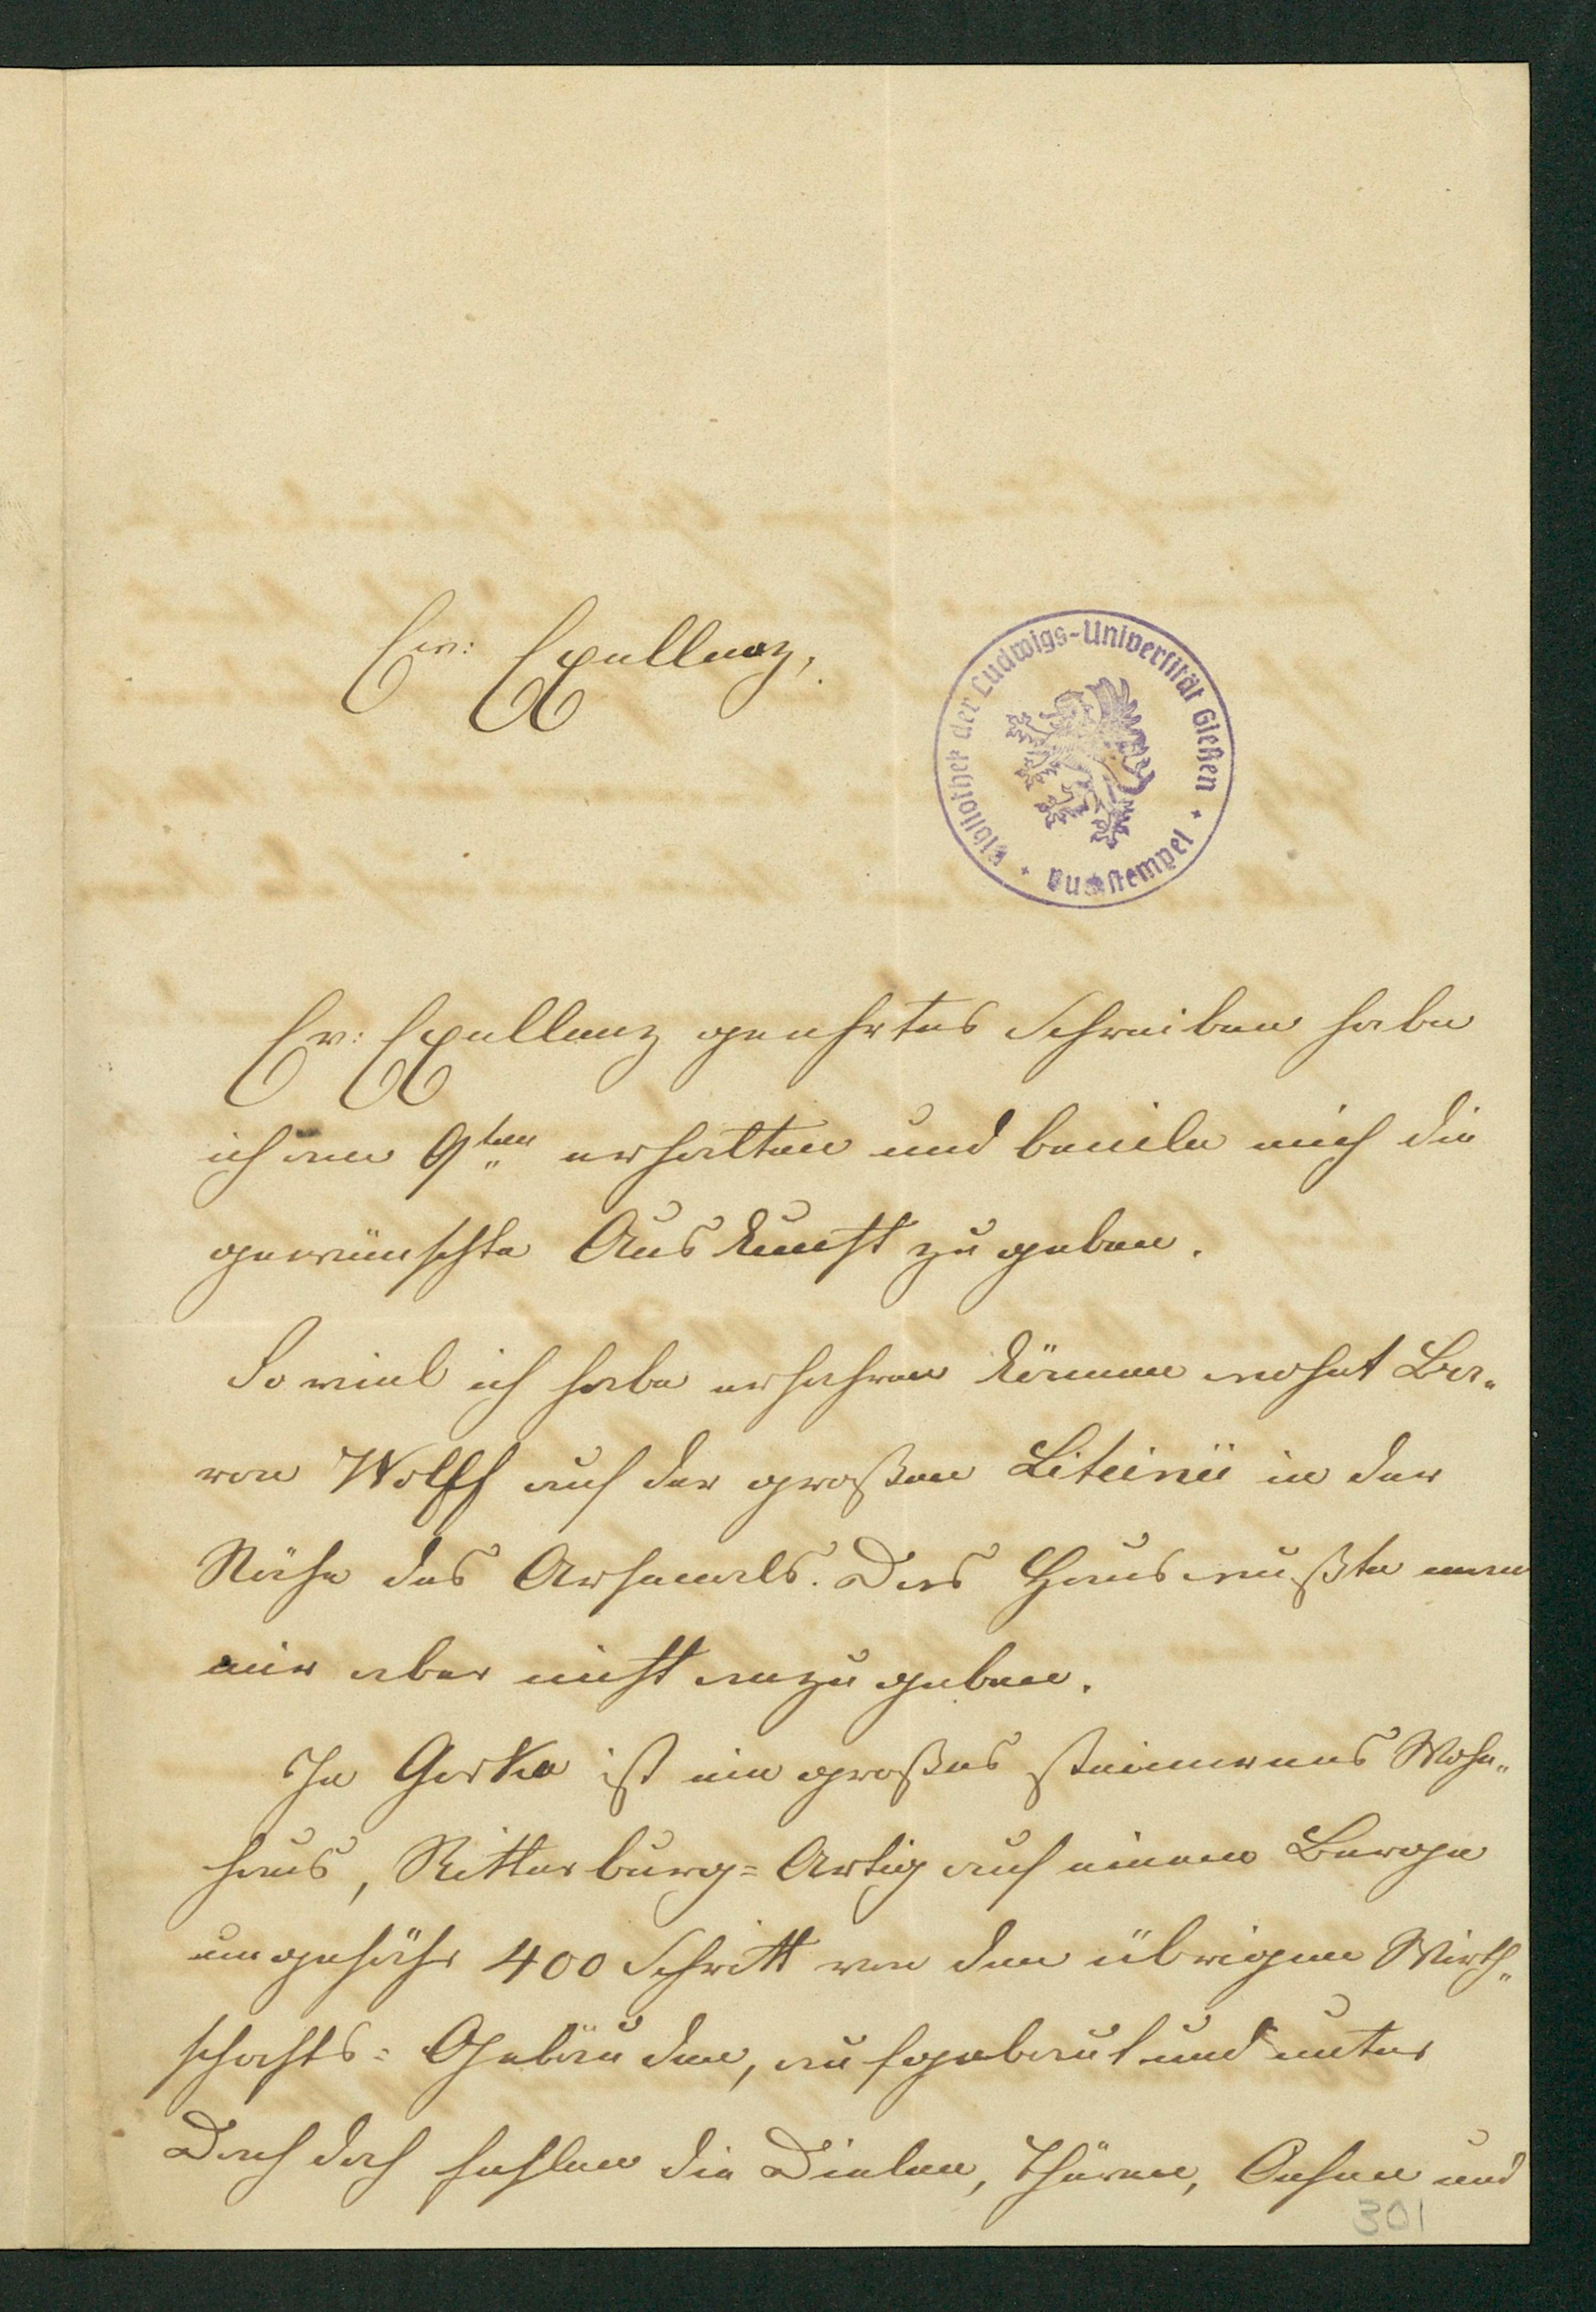 Ew: Exellenz,
Bibliothek der Ludwigs-Universität Gießen
Buchstempel
Ew: Exellenz geehrtes Schreiben habe
ich am 9ten erhalten und beeile mich die
gewünschte Auskunft zu geben.
So viel ich habe erfahren können wohnt Ba-
ron Wolff auf der großen Liteinii in der
Nähe des Arsenals. Das Haus wußte man
mir aber nicht anzugeben.
In Gorka ist ein großes steinernes Wohn-
haus, Ritterburg=Artig auf einem Berge
ungefähr 400 Schritt von den übrigen Wirth-
schafts=Gebäuden, aufgebaut und unter
Dach doch fehlen die Dielen, Thüren, Oefen und
301